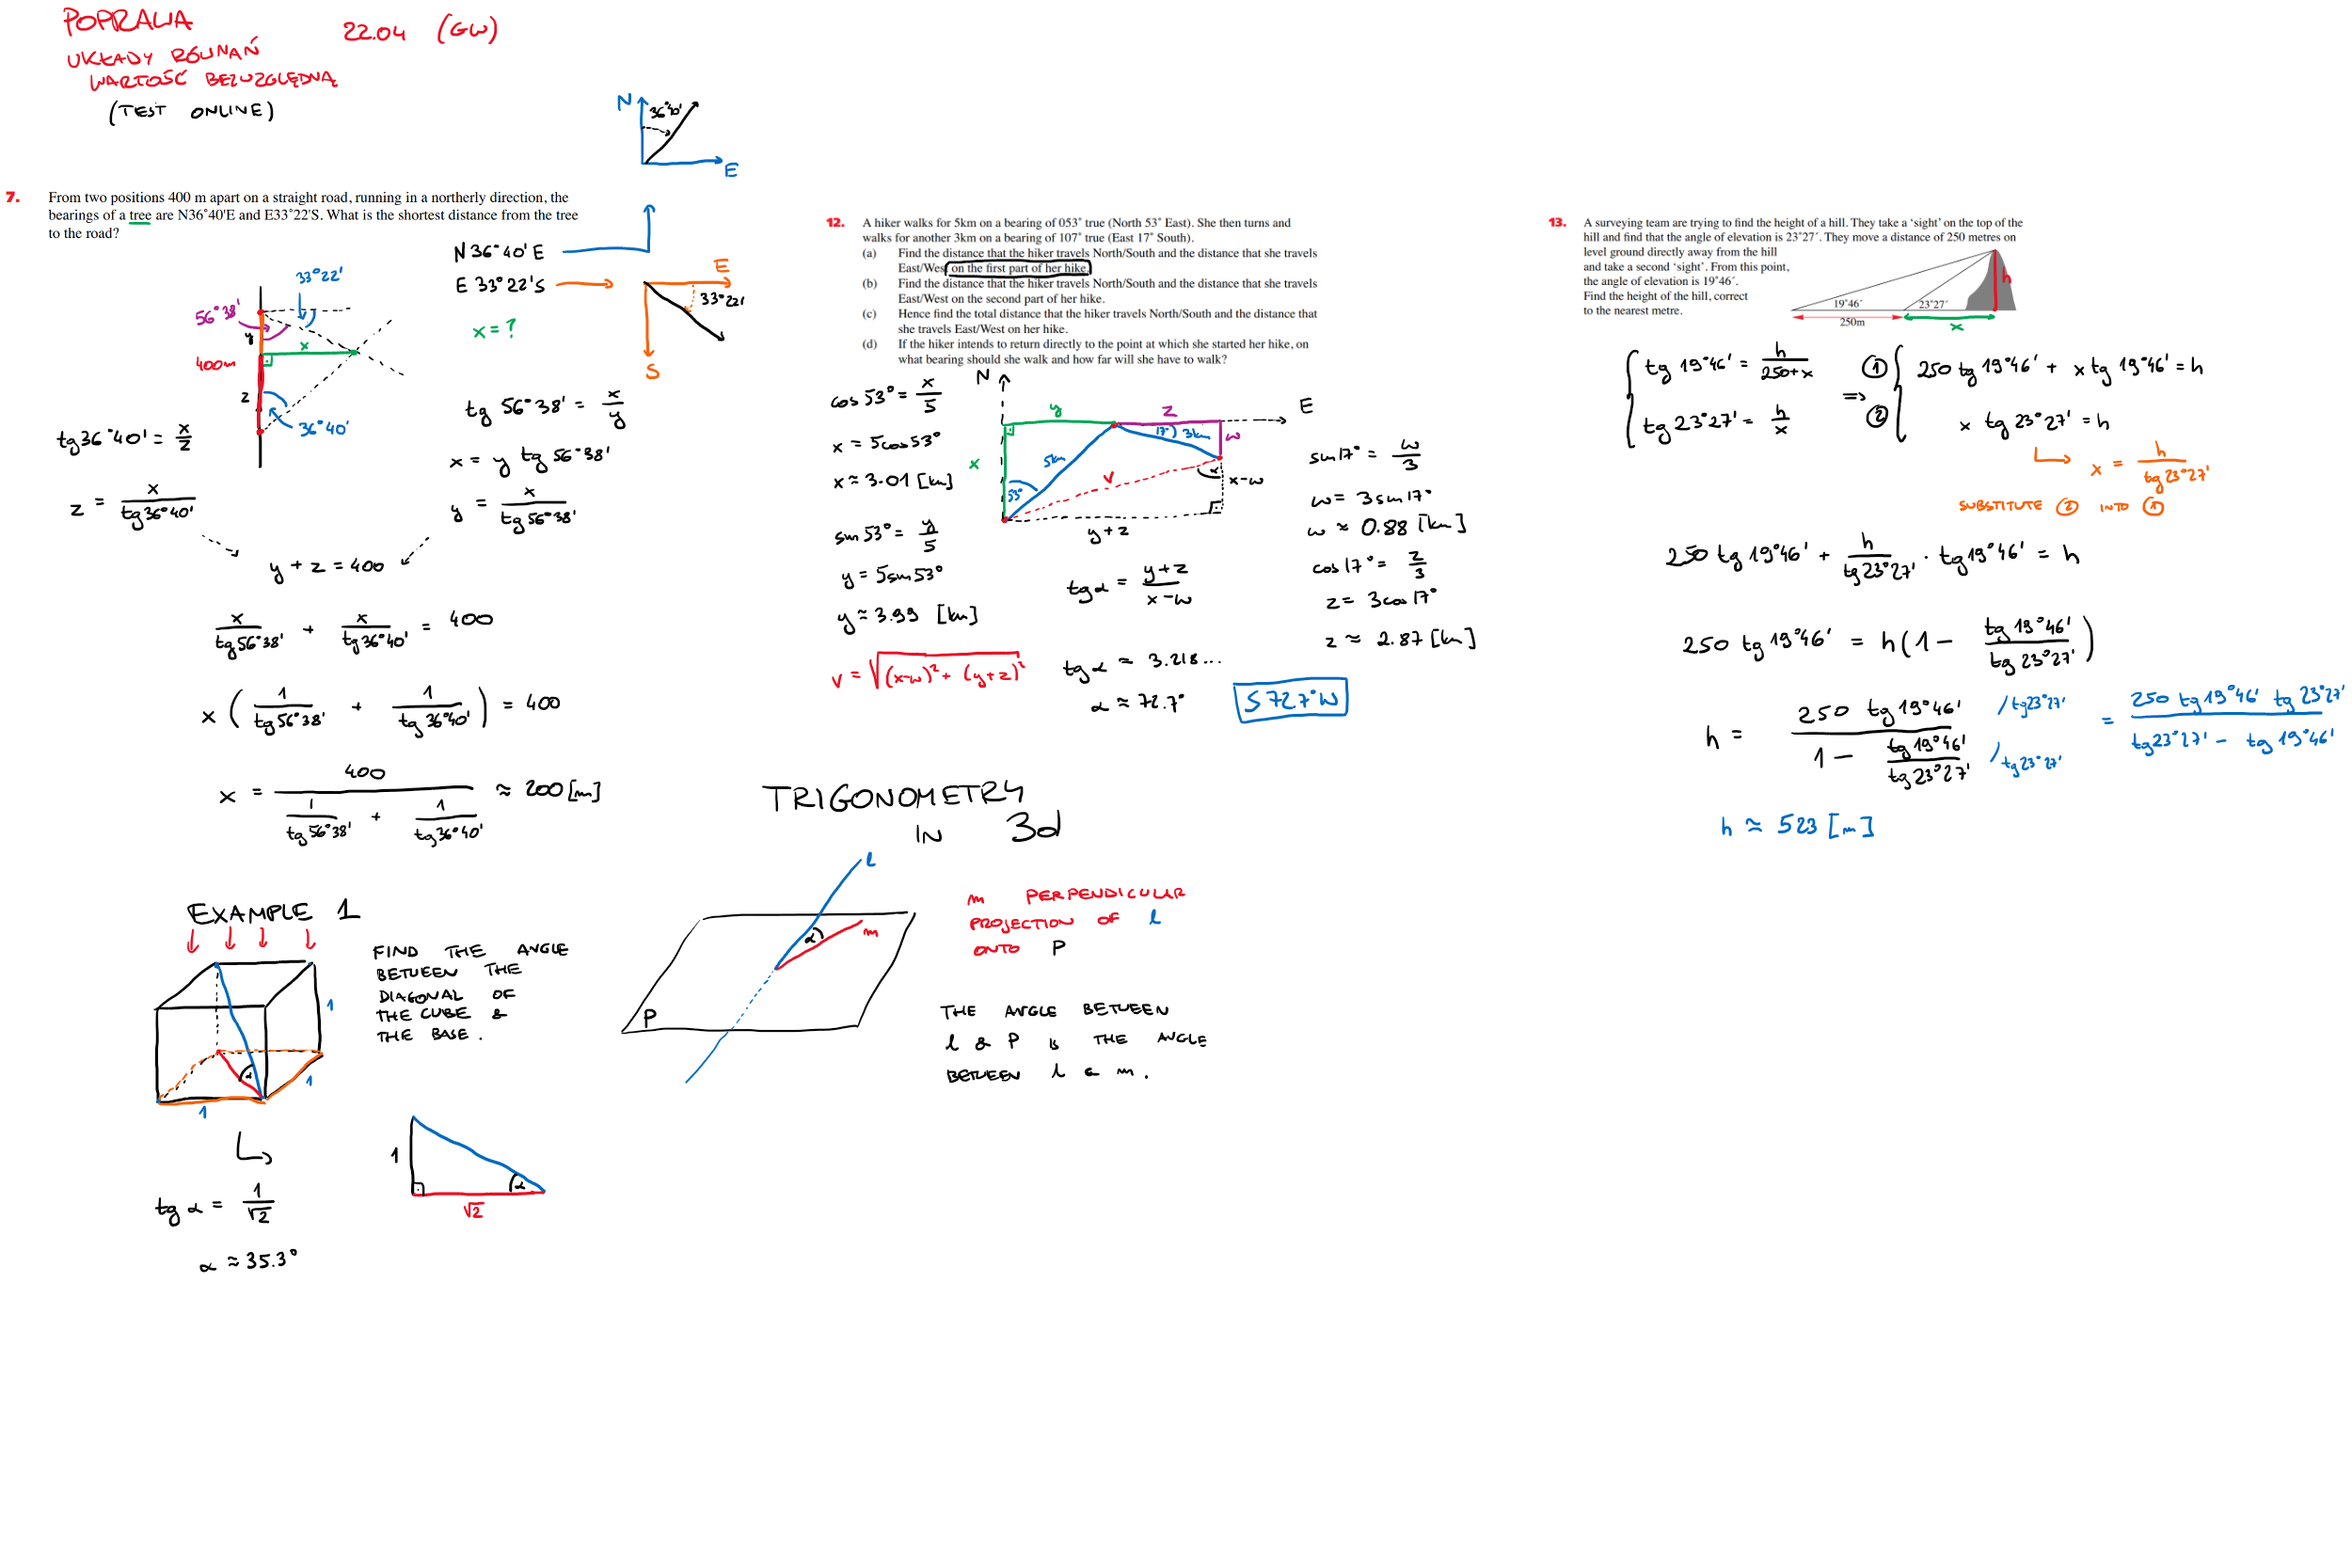 POPRAWA
22.04 (GW)
UKŁADY RÓWNAŃ
WARTOŚĆ BEZWZGLĘDNA
(TEST ONLINE)
N
36°40'
E
7. From two positions 400 m apart on a straight road, running in a northerly direction, the
bearings of a tree are N36˚40'E and E33˚22'S. What is the shortest distance from the tree
to the road?
N 36°40'E
E 33°22'S
E
33°22'
S
x = ?
33°22'
56°38'
y
x
400m
z
36°40'
tg36°40' = x/z
z = x/tg36°40'
tg 56°38' = x/y
x = y tg 56°38'
y = x/tg 56°38'
y + z = 400
x/tg56°38' + x/tg36°40' = 400
x (1/tg56°38' + 1/tg36°40') = 400
x = 400/(1/tg56°38' + 1/tg36°40') ≈ 200 [m]
12. A hiker walks for 5km on a bearing of 053˚ true (North 53˚ East). She then turns and
walks for another 3km on a bearing of 107˚ true (East 17˚ South).
(a) Find the distance that the hiker travels North/South and the distance that she travels
East/West on the first part of her hike.
(b) Find the distance that the hiker travels North/South and the distance that she travels
East/West on the second part of her hike.
(c) Hence find the total distance that the hiker travels North/South and the distance that
she travels East/West on her hike.
(d) If the hiker intends to return directly to the point at which she started her hike, on
what bearing should she walk and how far will she have to walk?
cos 53° = x/5
x = 5cos53°
x ≈ 3.01 [km]
sin 53° = y/5
y = 5sin53°
y ≈ 3.99 [km]
v = √((x-w)² + (y+z)²)
N
E
y
z
17°
3km
w
x
5km
53°
v
α
x-w
y+z
tgα = y+z/x-w
tgα ≈ 3.218...
α ≈ 72.7°
S 72.7°W
sin17° = w/3
w = 3sin17°
w ≈ 0.88 [km]
cos17° = z/3
z = 3cos17°
z ≈ 2.87 [km]
13. A surveying team are trying to find the height of a hill. They take a ‘sight’ on the top of the
hill and find that the angle of elevation is 23˚27´. They move a distance of 250 metres on
level ground directly away from the hill
and take a second ‘sight’. From this point,
the angle of elevation is 19˚46´.
Find the height of the hill, correct
to the nearest metre.
h
19˚46´
23˚27´
250m
x
tg 19°46' = h/250+x
tg 23°27' = h/x
=>
① 250 tg 19°46' + x tg 19°46' = h
② x tg 23°27' = h
x = h/tg23°27'
SUBSTITUTE ② INTO ①
250 tg 19°46' + h/tg23°27' · tg19°46' = h
250 tg 19°46' = h(1 - tg 19°46'/tg 23°27')
h = 250 tg19°46'/(1 - tg19°46'/tg23°27') /tg23°27' /tg23°27' = 250 tg19°46' tg23°27'/tg23°27' - tg19°46'
h ≈ 523 [m]
TRIGONOMETRY
IN 3d
EXAMPLE 1
FIND THE ANGLE
BETWEEN THE
DIAGONAL OF
THE CUBE &
THE BASE.
1
α
1
1
1
α
√2
tg α = 1/√2
α ≈ 35.3°
l
α
m
P
m PERPENDICULAR
PROJECTION OF l
ONTO P
THE ANGLE BETWEEN
l & P IS THE ANGLE
BETWEEN l & m.